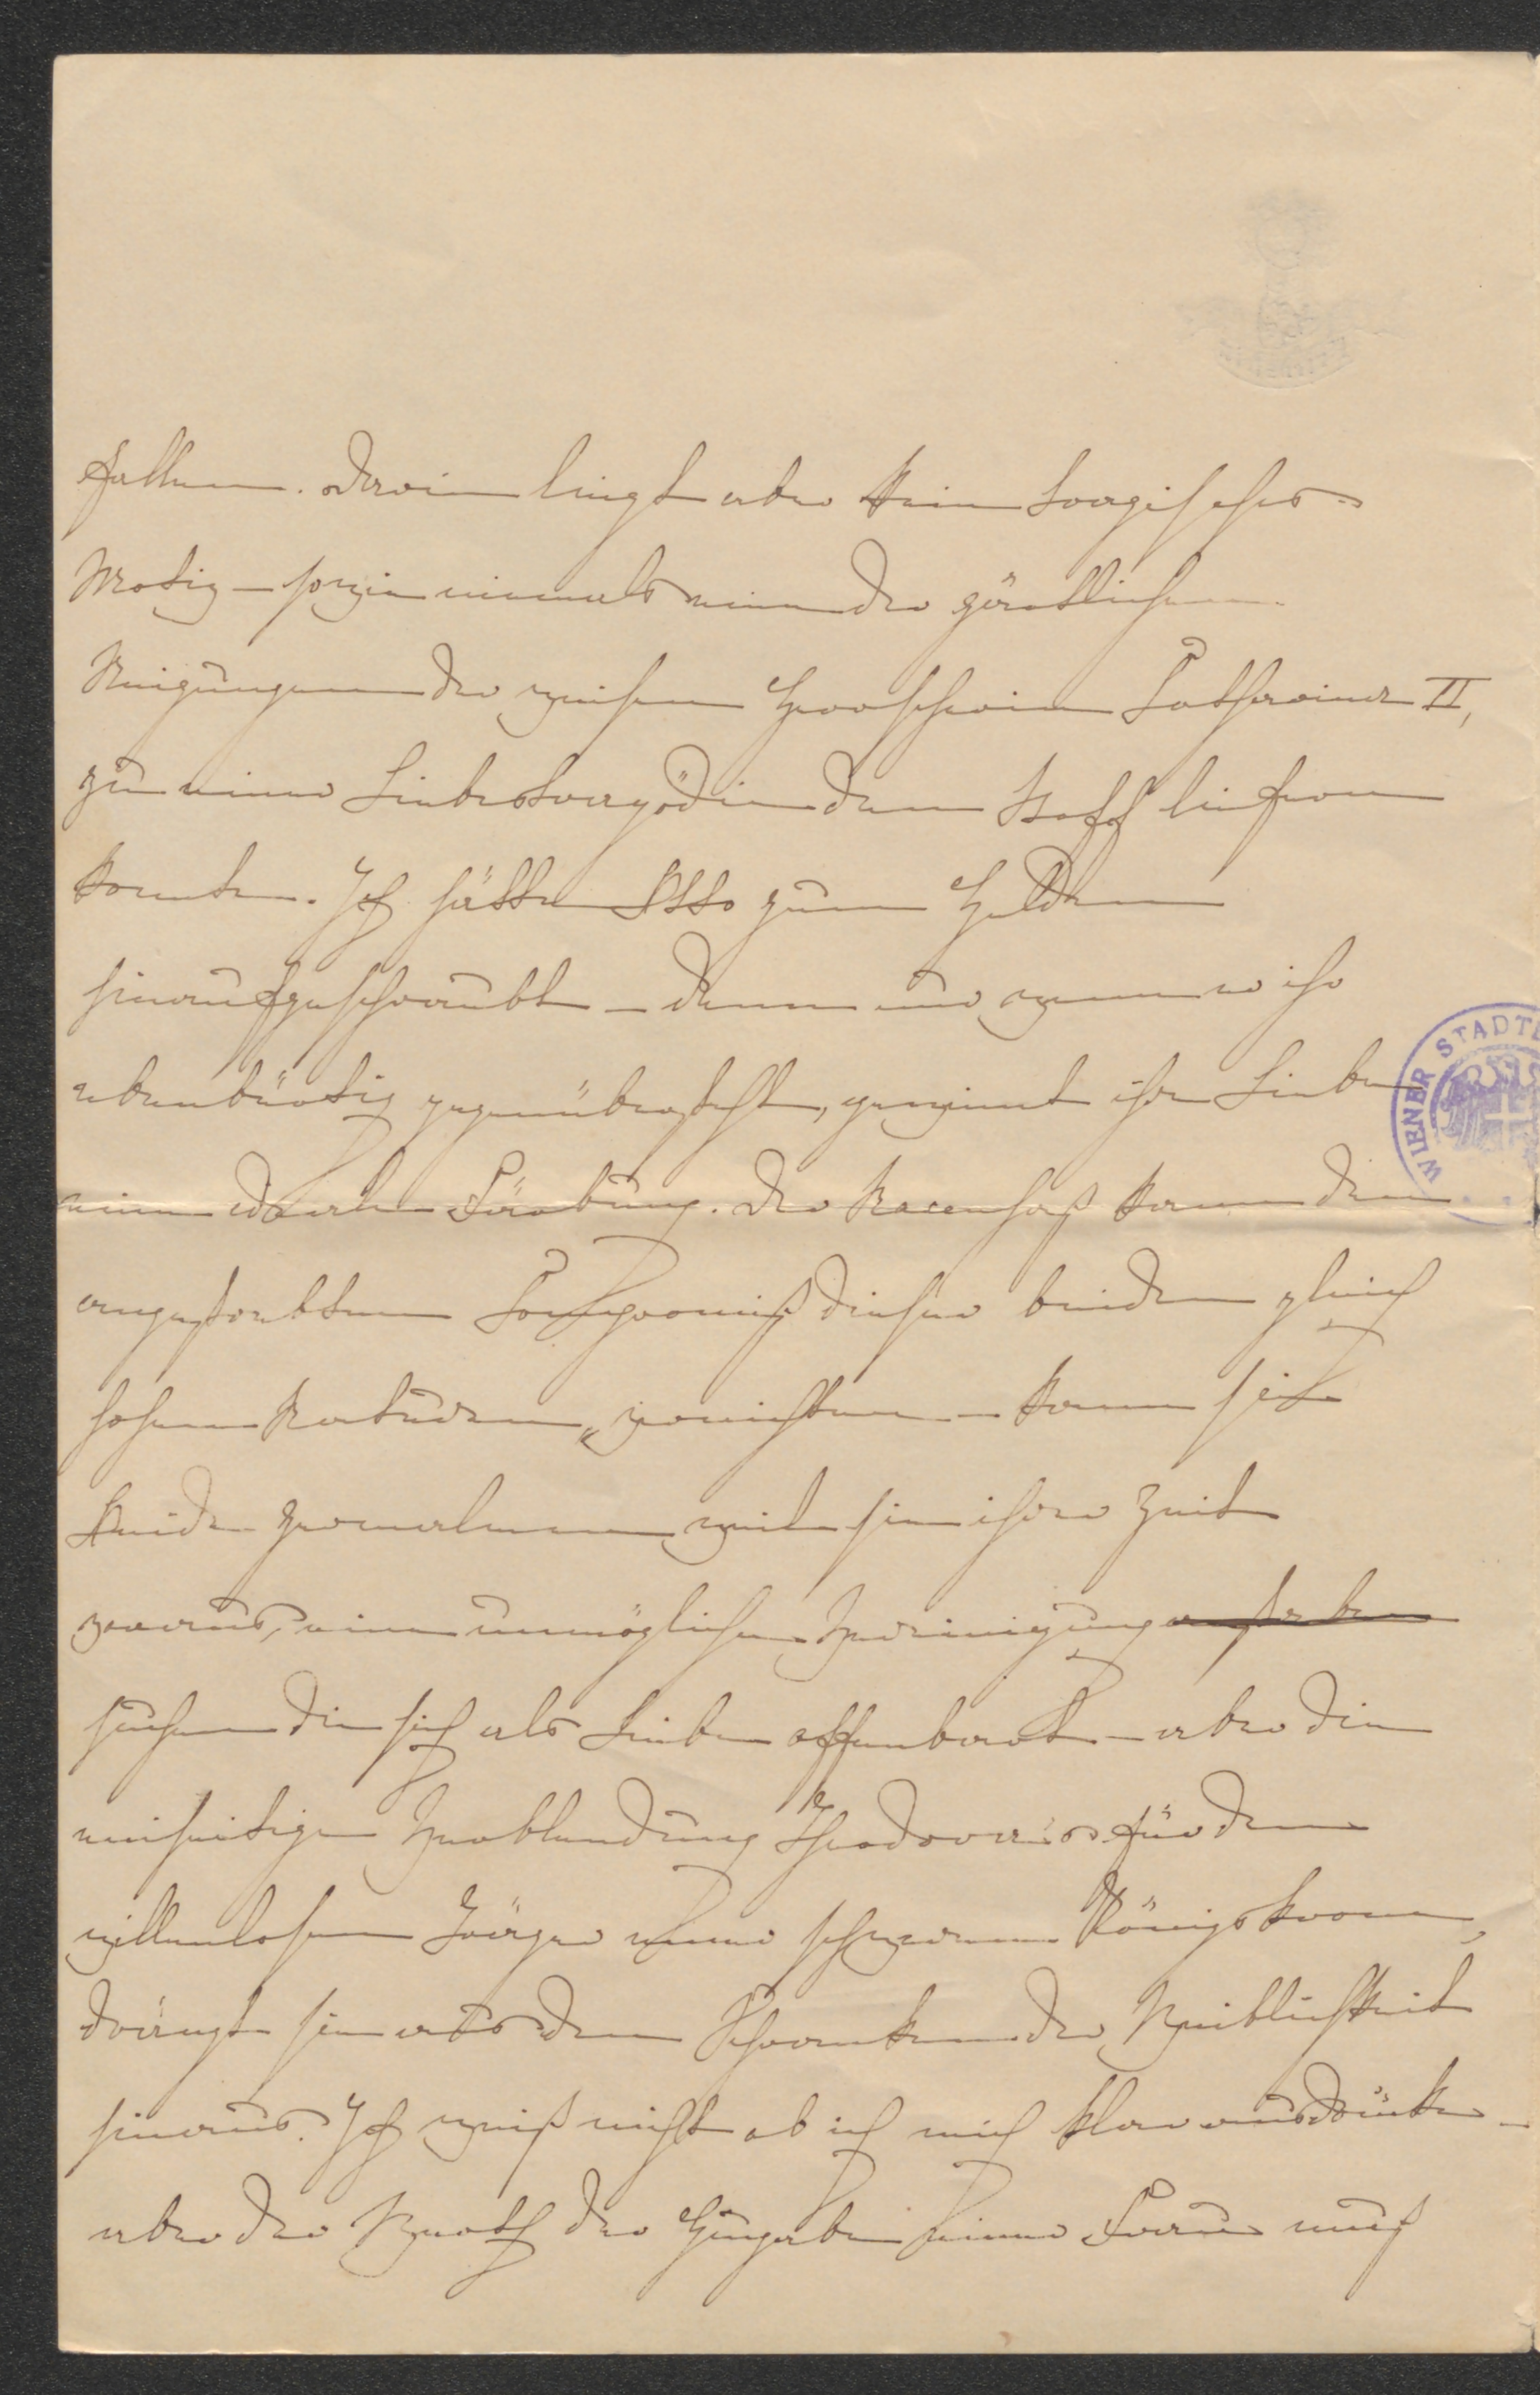 fallen. Darin liegt aber kein tragisches
Motiv – so wie niemals eine der zärtlichen
Neigungen der weisen Herrscherin Catharina II,
zu einer Liebestragödie den Stoff liefern
konnte. Ich hätte Otto zum Helden
hinaufgeschraubt – denn nur wenn er ihr
ebenbürtig gegenübersteht, gewinnt ihre Liebe
eine ideale Färbung. Der Racenhaß kann den
angestrebten Compromiß dieser beiden gleich
hohen Naturen vernichten – kann sie
Beide zermalmen weil sie ihrer Zeit
voraus, eine unmögliche Vereinigung anstreben
suchen die sich als Liebe offenbart – aber die
einseitige Verblendung Theodora's für den
willenlosen Träger einer schweren Königskrone,
drängt sie aus den Schranken der Weiblichkeit
hinaus. Ich weiß nicht ob ich mich klar ausdrücke –
aber der Werth der Hingabe einer Frau muß
WIENER STADTB